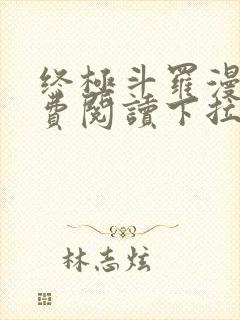 终极斗羅漫
費閱讀下拉
林志炫